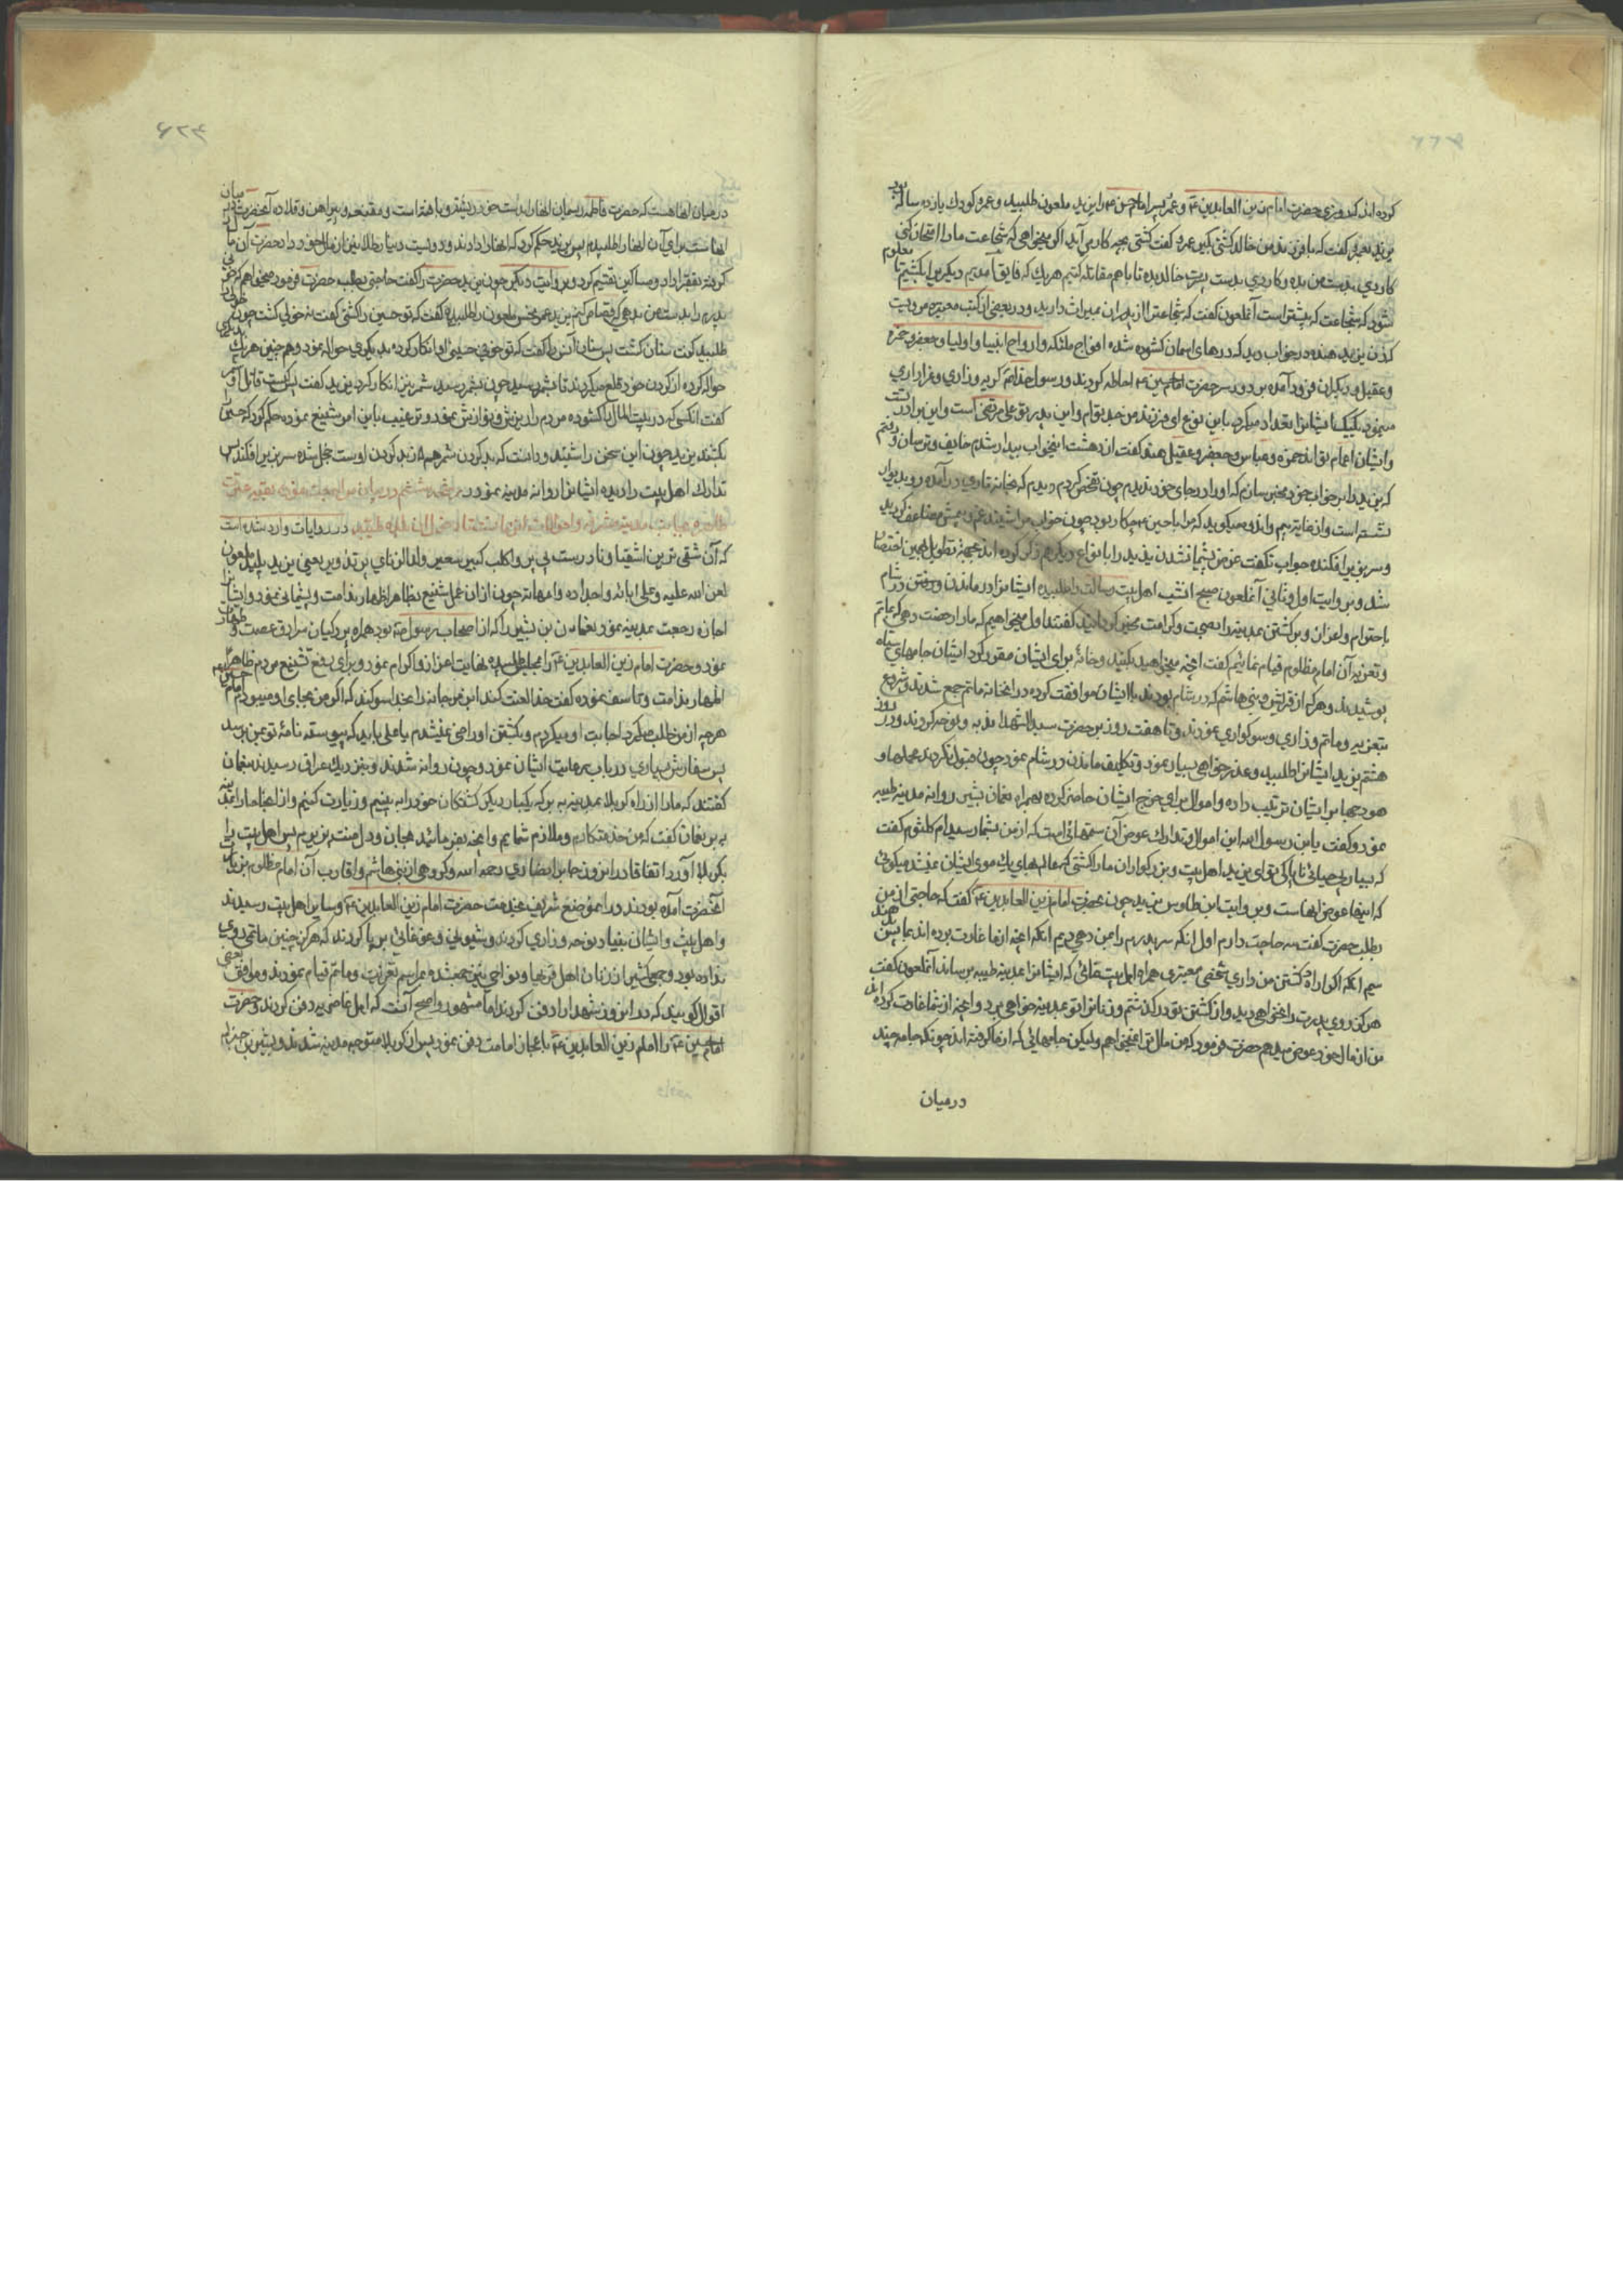 کرده اند که روزی حضرت امام زین العابدین ع و عمرو پسر امام حسن ع را یزید ملعون طلبید و عمرو کودک یازده ساله بود
یزید بعمرو گفت که با فرزند من خالد کشتی بگیر عمرو گفت کشتی بچه کار می آید اگر میخواهی که شجاعت ما را امتحان کنی
کاردی بدست من بده و کاردی بدست پسرت خالد بده تا با هم مقاتله کنیم هر یک که فایق آمدیم دیگری را بکشیم تا معلوم
شود که شجاعت که بیشتر است آنملعون گفت که شجاعت را از پدران میراث دارید و در بعضی از کتب معتبره مرویست
کزن یزید هنده در خواب دید که درهای اسمان کشوده شده افواج ملئکه و ارواح انبیا و اولیا و جعفر و حمزه
و عقیل و دیگران فرود آمده بر دور سر حضرت امام حسین ع احاطه کردند و رسول خدا گریه و زاری و
مینمود یکیک ایشانرا تعداد میکرد باین نوع ای فرزند من جد توام و این پدر تو علی مرتضی است و این برادر تست
و ایشان اعمام تواند حمزه و عباس و جعفر و عقیل هند گفت از دهشت اینخواب بیدار شدم خایف و ترسان رفتم
که یزید را بر خواب خود مخبر سازم که او را در جای خود ندیدم چون تفحص کردم دیدم که بخانه تاری در آمده رو بدیوار
نشسته است و از غایت بیم و اندوه میگوید که مرا با حسین ع چکار بود چون خواب مرا شنید غمش مضاعف کردید
و سر بزیر افکنده جواب نگفت غرض پشیمان شدن یزید را بانواع دیگر هم ذکر کرده اند بجهة تطویل بهمین اختصار
شد و بروایت اول و ثانی آنملعون صبح انشب اهل بیت رسالت را طلبیده ایشانرا در ماندن و رفتن در شام
باحترام و اعزاز و برگشتن بمدینه با صحت و کرامت مخیر گردانید گفتند اول میخواهیم که ما را رخصت دهی که بماتم
و تعزیه آن امام مظلوم قیام نمائیم گفت انچه میخواهید بکنید و خانه برای ایشان مقرر کرد ایشان جامهای سیاه
پوشیدند و هر که از قرایش و بنی هاشم که در شام بودند با ایشان موافقت کرده در انخانه ماتم جمع شدند و شروع
بتعزیه و ماتم و زاری و سوکواری نمودند و تا هفت روز بر حضرت سید الشهدا ندبه و نوحه کردند و در روز
هشتم یزید ایشانرا طلبید و عذر خواهی بسیار نمود و تکلیف ماندن در شام نمود چون قبول نکردند محملها و
هودجها برای ایشان ترتیب داده و اموال برای خرج ایشان حاضر کرده بهمراه نعمان بشیر روانه مدینه طیبه
نمود و گفت یا بن رسول الله این اموال و تدارک عوض آن ستمهائی است که از من بشما رسید ام کلثوم گفت
که بسیار بی حیائی ای یزید اهل بیت و بزرکواران ما را کشتی که عالمهای یک موی ایشان نمیشد میکوئی
که اینها عوض انهاست و بروایت ابن طاوس یزید چون بحضرت امام زین العابدین ع گفت که حاجتی از من
بطلب حضرت گفت سه حاجت دارم اول انکه سر پدرم را بمن دهی دویم انکه انچه از ما غارت برده اند بما پس دهند
سیم انکه اگر اراده کشتن من داری شخصی معتبری همراه اهل بیت نمائی که ایشانرا بمدینه طیبه برساند آنملعون گفت
هرگز روی پدرت را نخواهی دید و از کشتن تو درگذشتم و زنانرا تو بمدینه خواهی برد و انچه از شما غارت کرده اند
من از مال خود عوض میدهم حضرت فرمود که من مال ترا نمیخواهم ولیکن جامهائی که از ما گرفته اند چونکه جامه چند
درمیان
در میان انها هست که حضرت فاطمه ریسمان انها را بدست خود رشته و بافته است و مقنعه و پیراهن و قلاده آنحضرت در میان
انهاست برای آن انها را طلبیدم پس یزید حکم کرد که انها را دادند و دویست دینار طلا نیز از مال خود داد حضرت آن مال را
گرفته بفقرا داد و مساکین تقسیم کرد و بروایت دیگر چون یزید حضرت را گفت حاجتی بطلب حضرت فرمود میخواهم که
پدرم را بدست من بدهی که قصاص کنم یزید خولی ملعون را طلبیده گفت که تو حسین را کشتی گفت نه خولی کشت چون خولی را
طلبید گفت سنان کشت پس سنان انس را گفت که تو حسین را انکار کرده بدیگری حواله نمود و همچنین هر یک بدیگری
حواله کرده از کردن خود قلع میکردند تا بشمر رسید چون بشمر رسید شمر نیز انکار کرد یزید گفت پس کیست قاتل او شمر
گفت انکسی که در بیت المال را کشوده مردم را بریزش و نوازش نمود و ترغیب باین امر شنیع نموده حکم کرد که حسین را
بکشند یزید چون این سخن را شنید و دانست که بد کردن شمر هم از بد کردن اوست خجل شده سر بزیر افکند پس
تدارک اهل بیت را دیده ایشانرا روانه مدینه نمود
در روایات وارد شده است
که آن شقی ترین اشقیا یعنی یزید پلید ملعون
لعن الله علیه و علی ابائه و اجداده و امهاته چون از ان عمل شنیع بظاهر اظهار ندامت و پشیمانی نمود و ایشانرا
اجازه رجعت بمدینه نمود نعمان بن بشیر را که از اصحاب رسول بود همراه پردکیان سرادق عصمت و طهارت
نمود و حضرت امام زین العابدین ع را بمجلس طلبیده نهایت اعزاز و اکرام نمود و برای رفع تشنیع مردم ظاهرا
اظهار ندامت و تاسف نموده گفت خدا لعنت کند ابن مرجانه را بخدا سوکند که اگر من بجای او میبودم امام حسین
هر چه از من طلب میکرد اجابت او میکردم و بکشتن او راضی نمیشدم یا علی باید که پیوسته نامۀ تو بمن برسد
پس سفارش بسیاری در باب رعایت ایشان نمود و چون روانه شدند و بنزدیک عراق رسیدند بنعمان
گفتند که ما را از راه کربلا بمدینه ببر که یکبار دیگر کشتکان خود را به بینیم و زیارت کنیم و از انجا ما را بمدینه
ببر نعمان گفت که من خدمتکارم و ملازم شمایم و انچه بفرمائید بجان و دل منت پذیرم پس اهل بیت را
بکربلا آورد اتفاقا در انروز جابر انصاری رحمه الله و گروهی از بنی هاشم و اقارب آن امام مظلوم بزیارت
آنحضرت آمده بودند در انموضع شریف بخدمت حضرت امام زین العابدین ع و سایر اهل بیت رسیدند
و اهل بیت و ایشان بنیاد نوحه و زاری کردند و شیونی و غوغائی برپا کردند که هرگز چنین ماتمی روی
نداده بود و جمع کثیر از زنان اهل قریها و نواحی نیز جمع شده بمراسم تعزیت و ماتم قیام نمودند و موافق بعضی
اقوال گویند که در انروز شهدا را دفن کردند اما مشهور و اصح آنست که اهل غاضریه دفن کردند و حضرت
امام حسین ع را امام زین العابدین ع باعجاز امامت دفن نمود پس از کربلا متوجه مدینه شدند و بشیر بن جذلم